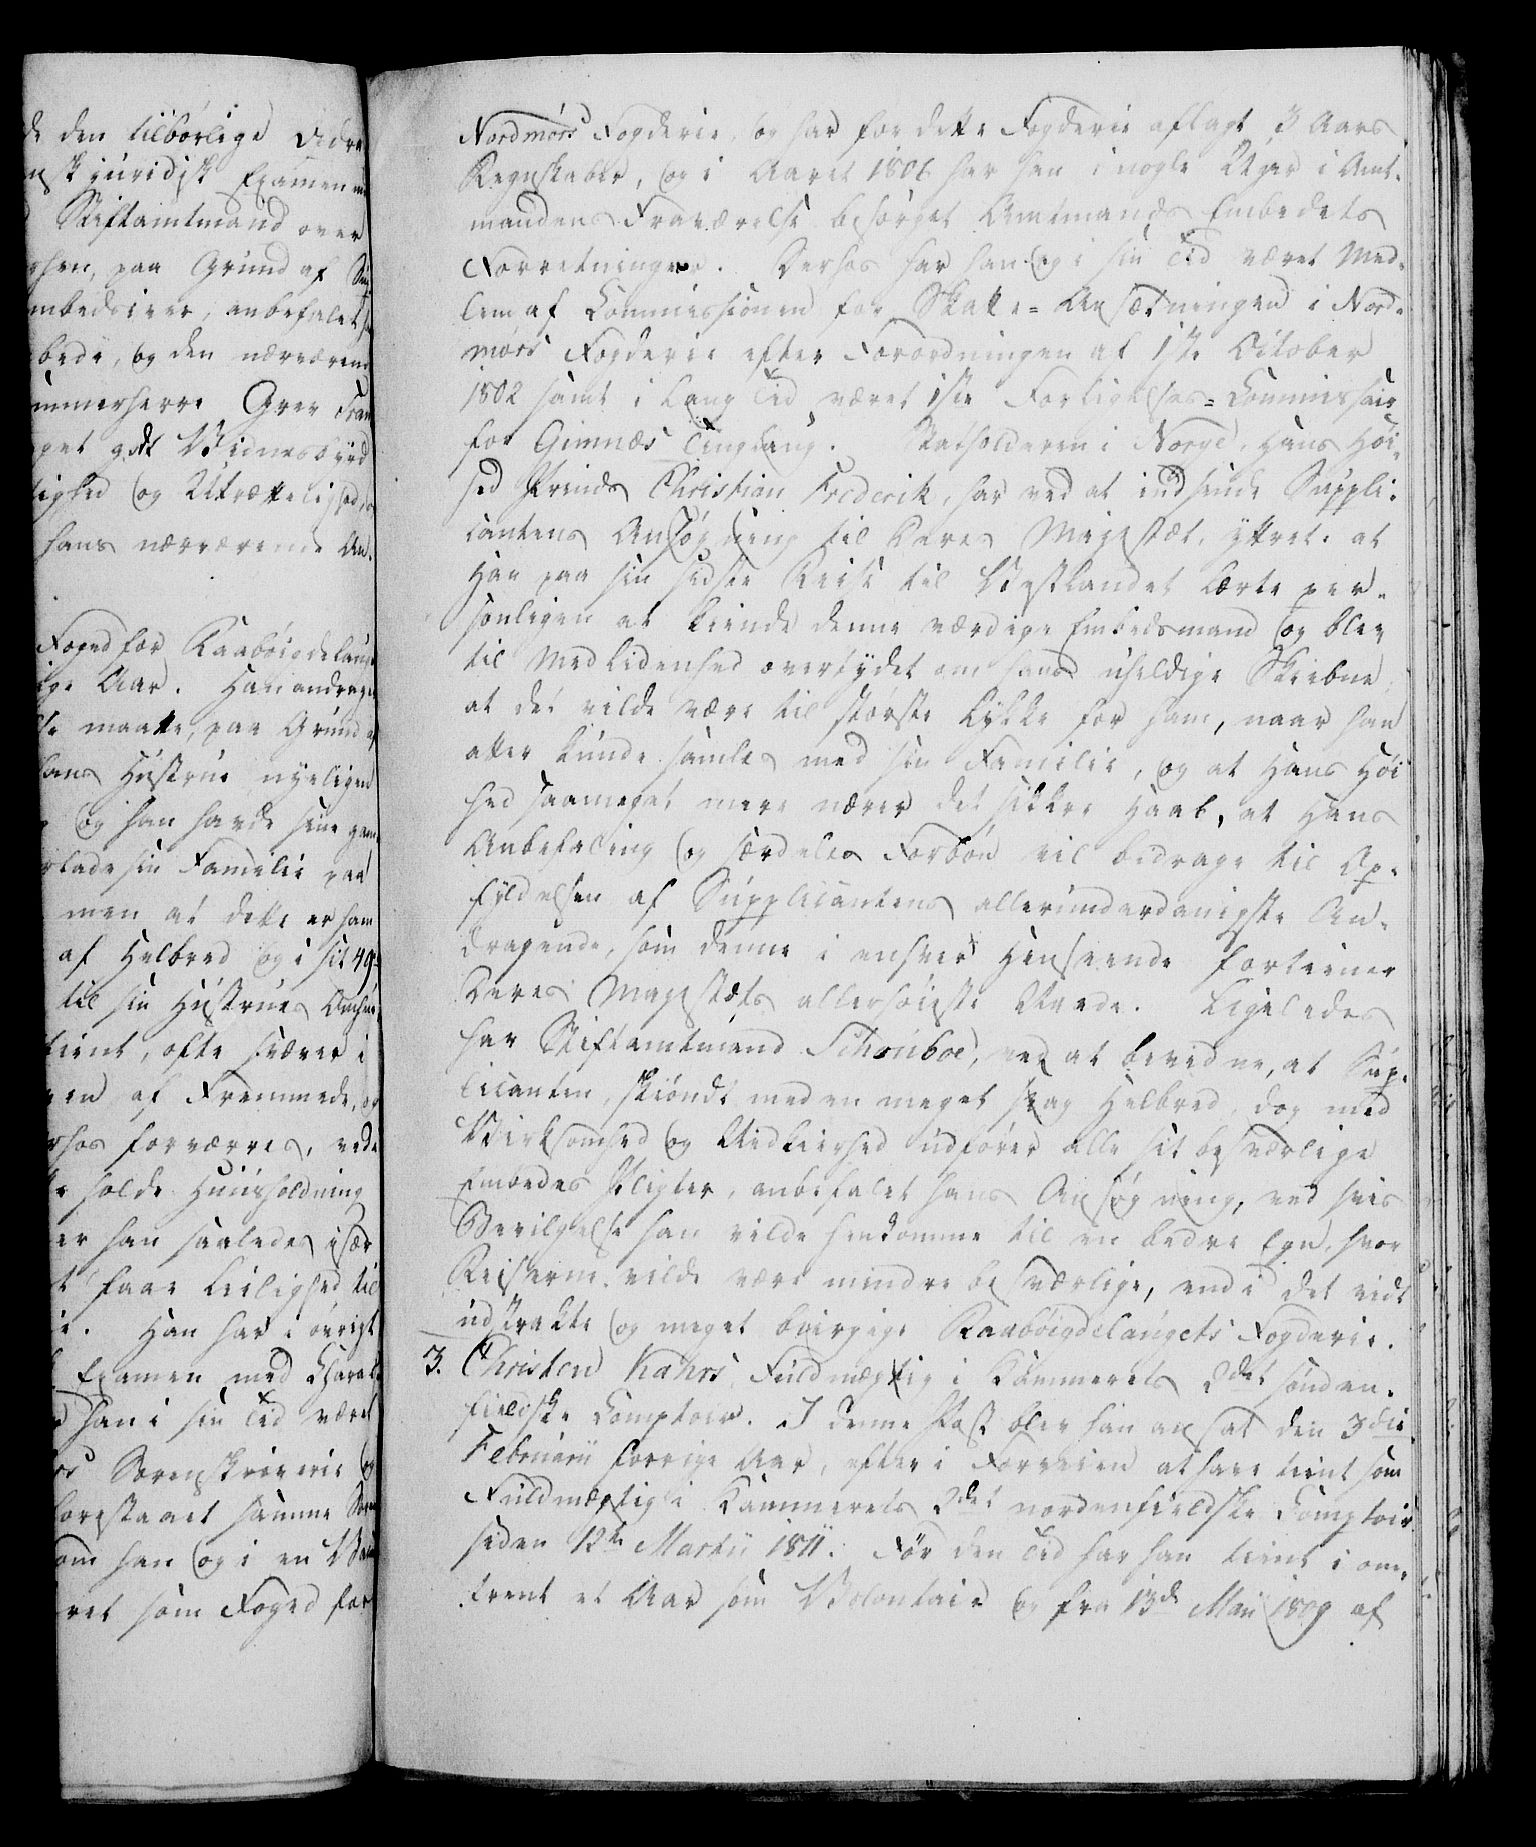 de den tilbørlige Vidn
nsk juridisk Examen
Stiftamtmand over
paa Grund af
anbefalet
bede, og den nærværende
ammerherre Grev
get godt Vidnesbyrd
lighed og Utrættelighed,
hans nærværende An-
Foged for Raabøigdelaug
ige Aar. Han andrager
maatte, paa Grund af
hans Hustrue nyeligen
og han havde sine
lade sin Familie paa
men at dette er ham
af Helbred og i sit 49de
til sin Hustrues
tient, ofte svæver i
af Fremmede, og
rhos forværres, ved
holde Huusholdning
er han saaledes især
t faae Leilighed til
Han har i øvrigt
Examen med Charak
han i sin Tid været
Sorenskriverie og
forestaaet samme
om han og i en
ret som Foged for
Nordmørs Fogderie, og har for dette Fogderie aflagt 3 Aars
Regnskaber, og i Aaret 1806 har han i nogle Uger i Amt-
mandens Fraværelse besørget Amtmands Embedets
Forretninger. Derhos har han og i sin Tid været Med-
lem af Commissionen for Skatte-Ansætningen i Nord-
mørs Fogderie efter Forordningen af 1ste October
1802 samt i lang Tid været 1ste Forligelses-Commissair
for Gimnæs Tinglaug. Statholderen i Norge, Hans Høi-
hed Prinds Christian Frederik, har ved at indsende Suppli-
cantens Ansøgning til Deres Majestæt, yttret: at
Han paa sin sidste Reise til Vestlandet lærte per-
sonligen at kiende denne værdige Embedsmand og blev
til Medlidenhed overtydet om hans uheldige Skiebne,
at det vilde være til største Lykke for ham, naar han
atter kunde samles med sin Familie, og at Hans Høi
hed saameget mere nærer det sikkre Haab, at Hans
Anbefaling og særdeles Forbøn vil bidrage til Op-
fyldelsen af Supplicantens allerunderdanigste An-
dragende, som denne i enhver Henseende fortiener
Deres Majestæts allerhøieste Naade. Ligeledes
har Stiftamtmand Schouboe, ved at bevidne, at Sup-
licanten, skiøndt med en meget svag Helbred, dog med
Virksomhed og Nidkierhed udfører alle sit besværlige
Embedes Pligter, anbefalet hans Ansøgning, ved hvis
Bevilgelse han vilde henkomme til en bedre Egn, hvor
Reiserne vilde være mindre besværlige, end i det vidt
udstrakte og meget biergige Raabøigdelaugets Fogderie.
3. Christen Kahrs, Fuldmægtig i Kammerets 2det sønden-
fieldske Comptoir. I denne Post blev han ansat den 3die
Februarii forrige Aar, efter i Forveien at have tient som
Fuldmægtig i Kammerets 2det nordenfieldske Comptoir
siden 12te Martii 1811. Før den Tid har han tient i om-
trent et Aar som Volontair og fra 13de Maii 1809 af